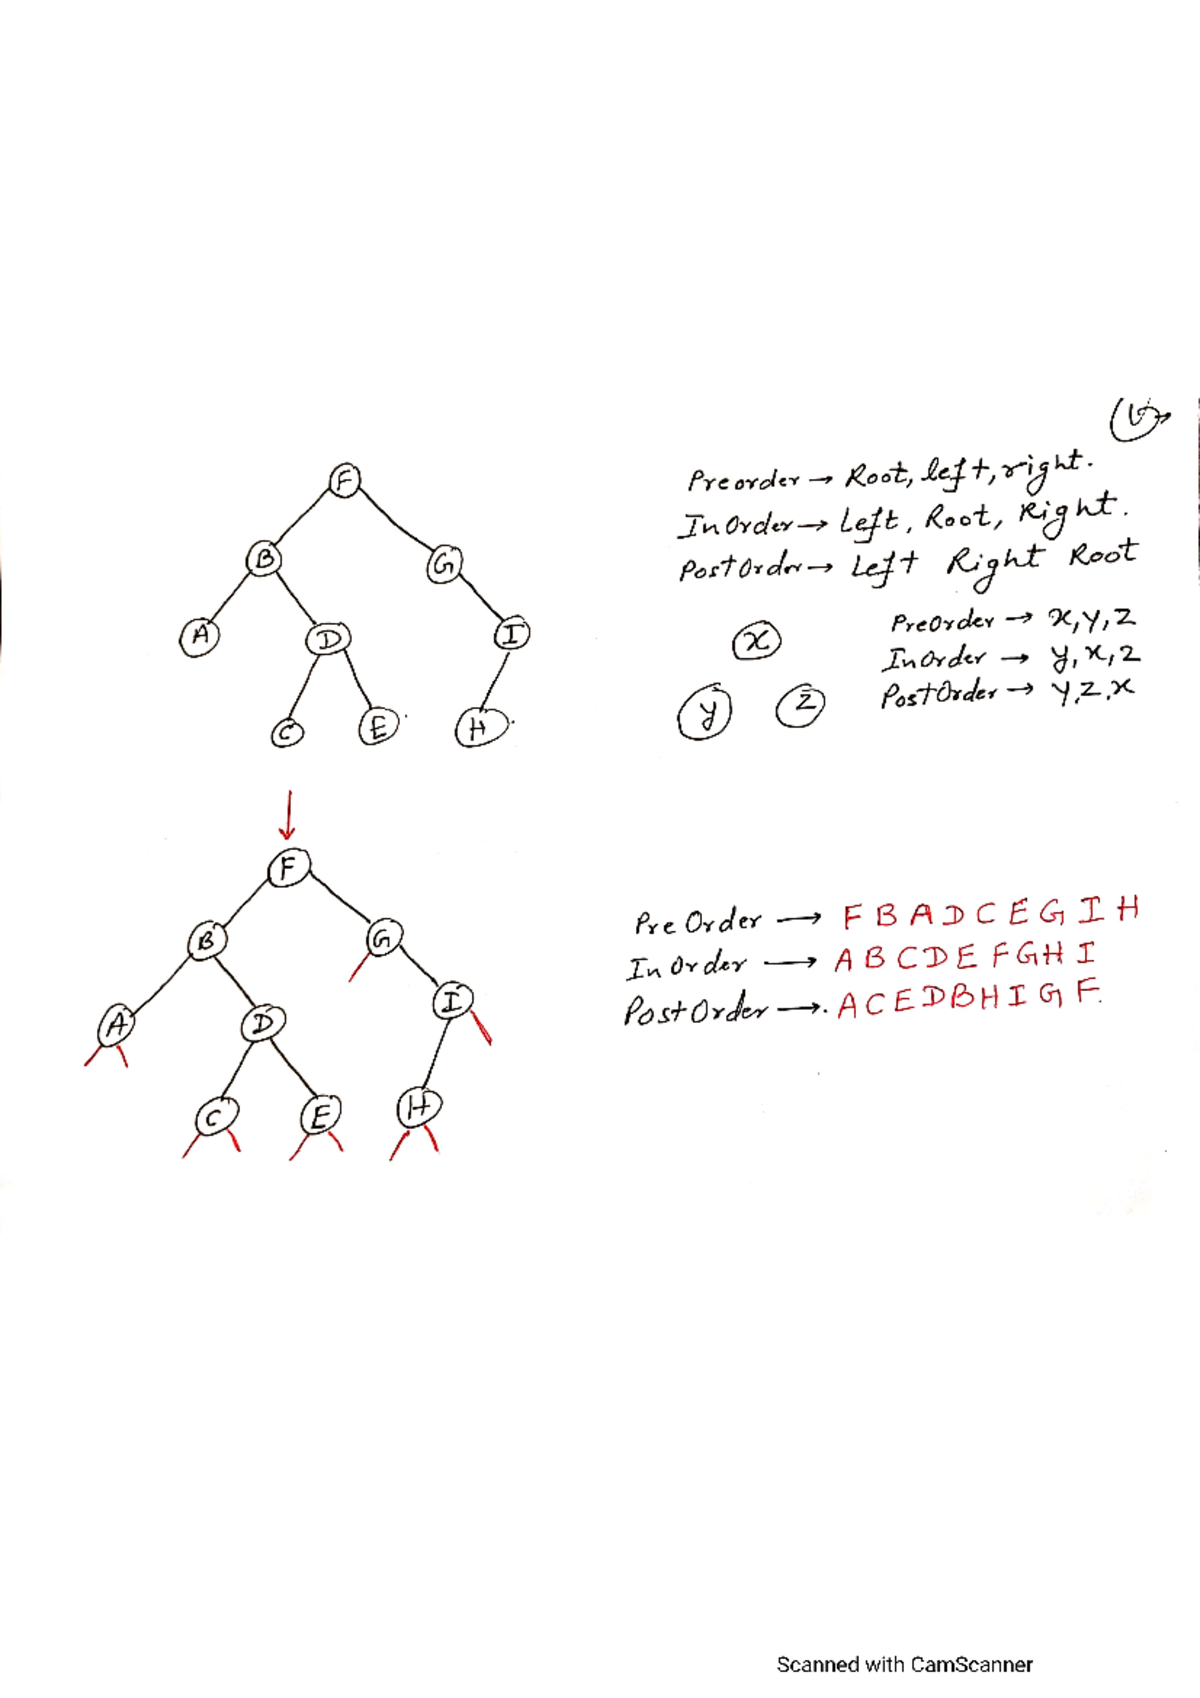 F
Preorder → Root, left, right.
InOrder → Left, Root, Right.
B
G
PostOrder → Left Right Root
A
D
I
x
PreOrder → x, y, z
InOrder → y, x, z
C
E
H
y
z
PostOrder → y, z, x
F
B
G
PreOrder → F B A D C E G I H
InOrder → A B C D E F G H I
A
D
I
PostOrder → A C E D B H I G F.
C
E
H
Scanned with CamScanner